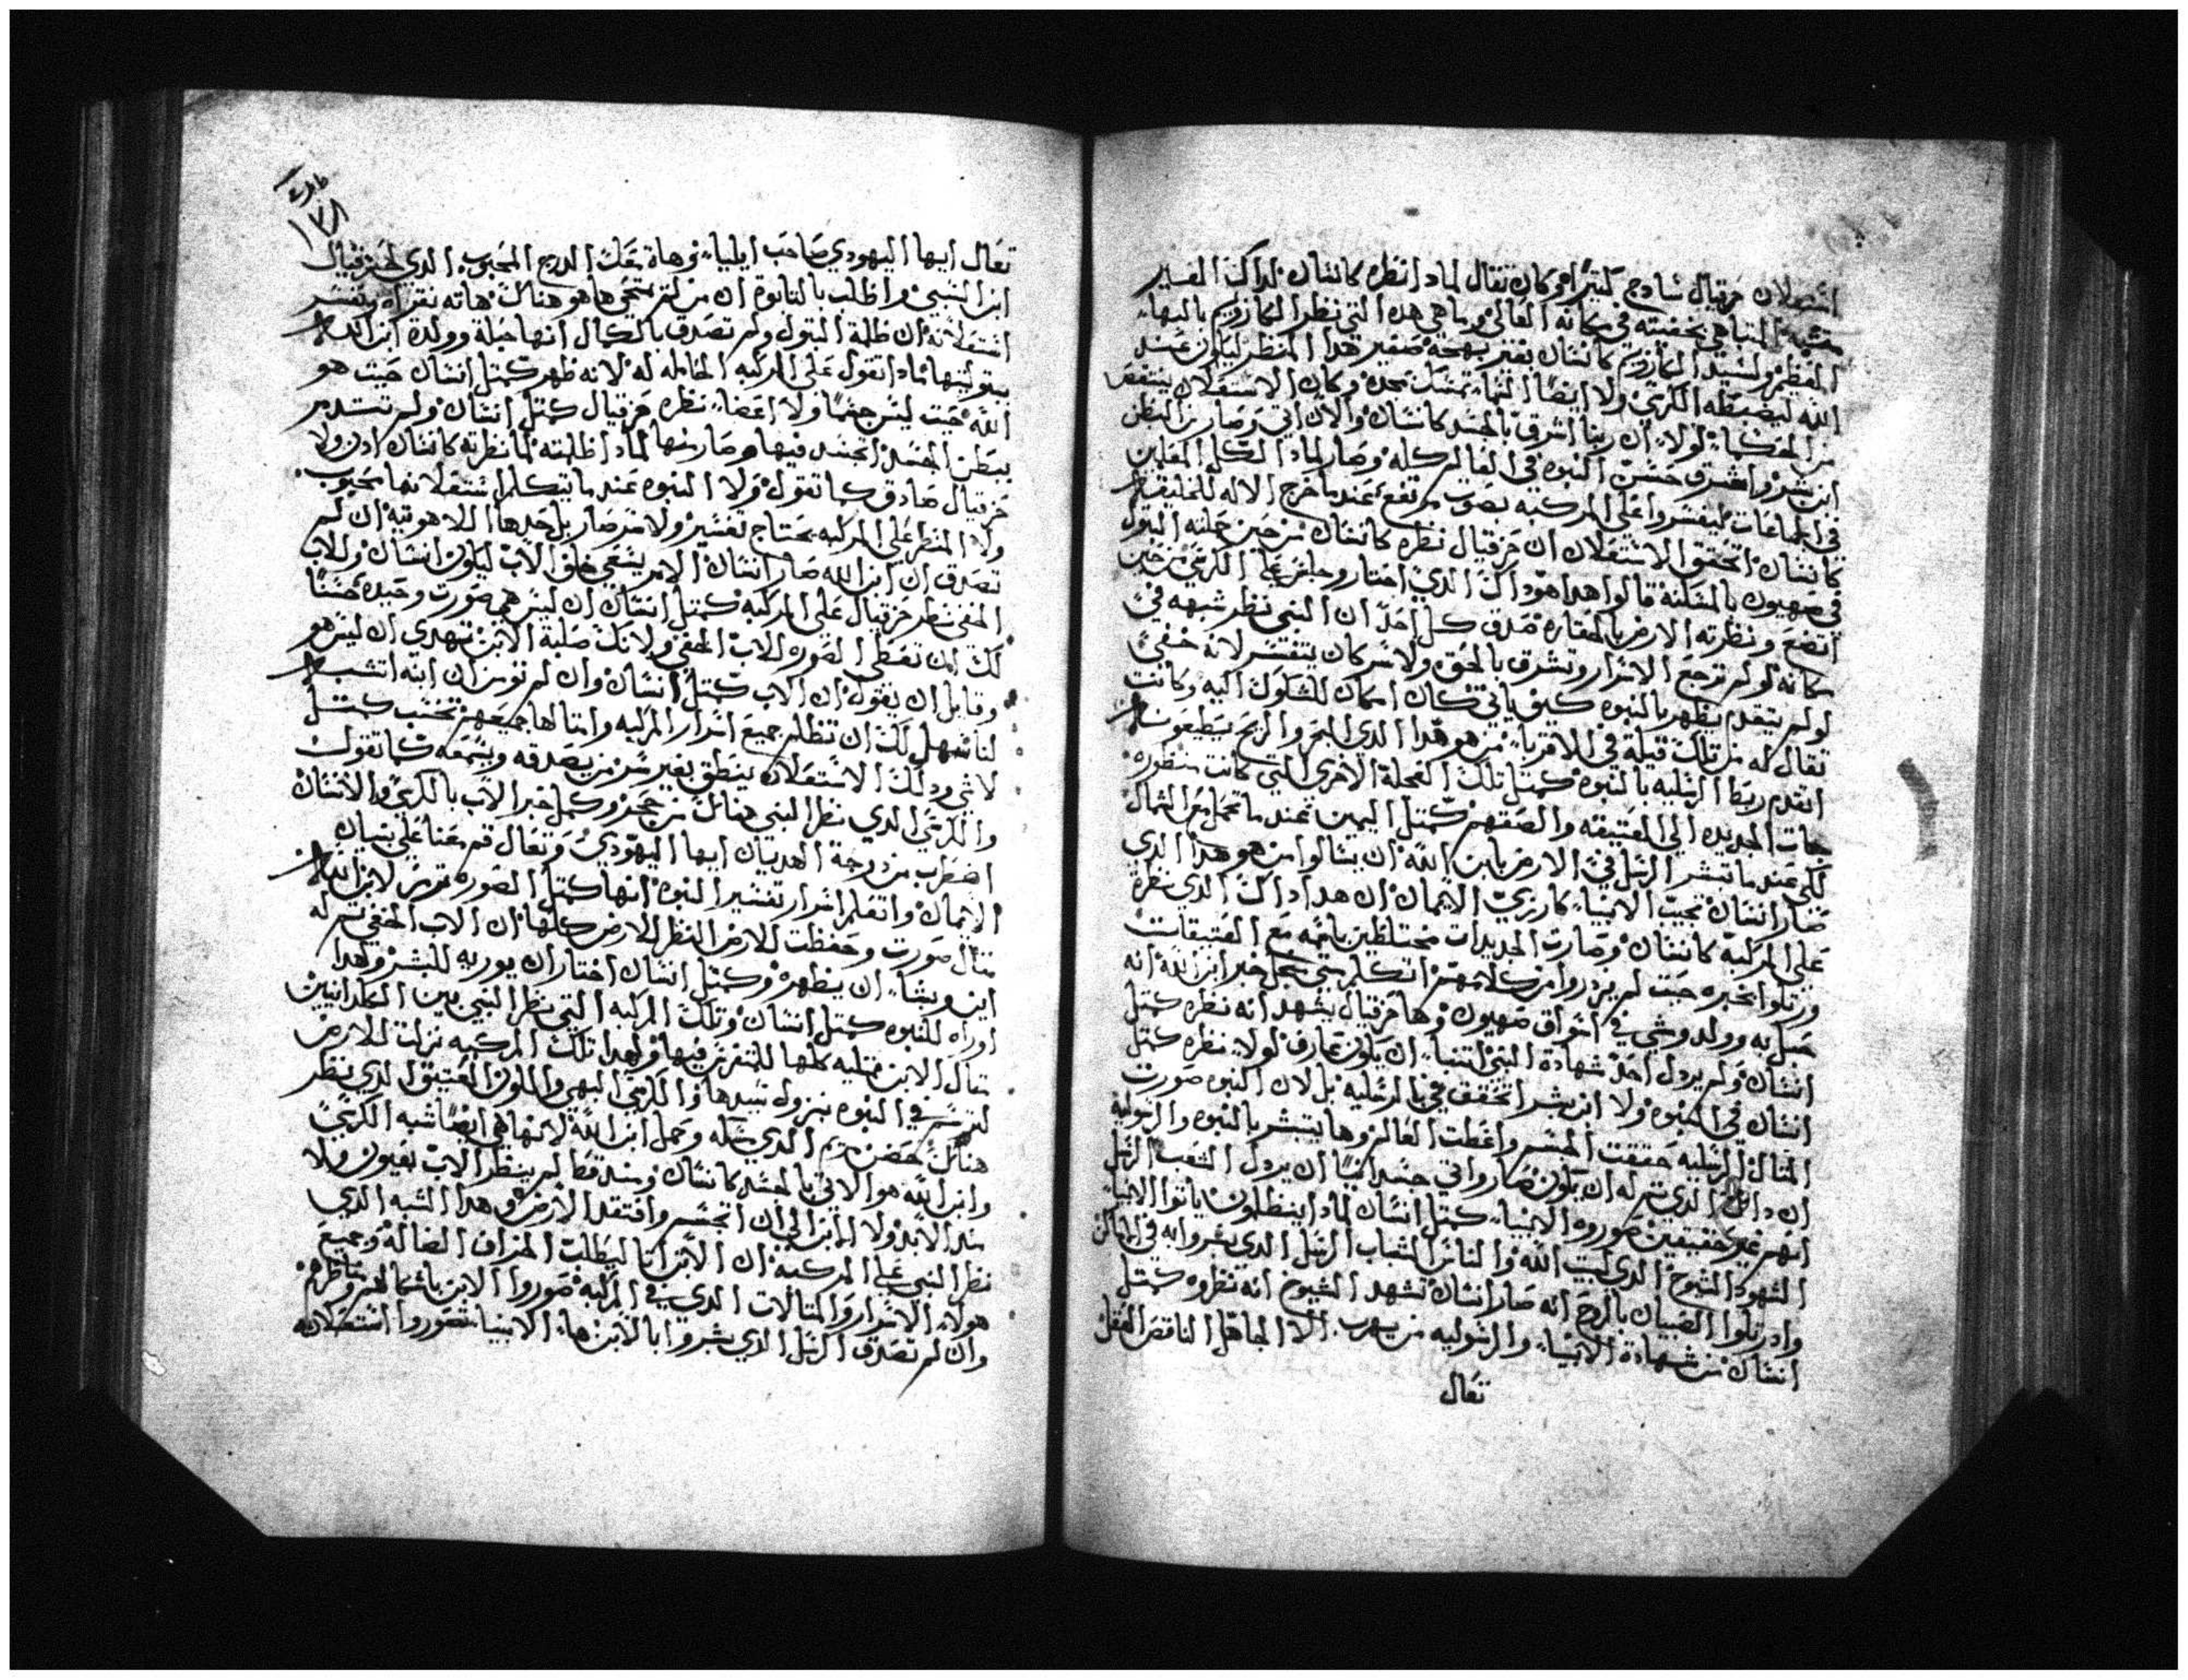 استعلان حزقيال سادج كتيرًا وكان تقال لمادا نظره كانسان لداك الغير
المتناهي بخفيته في مكانه العالي وما هي هده التي نظر الكاروبيم بالبهاء
العظيم ولسيد الكاروبيم كانسان بغير بهجة صغير هدا المنظر ليكون عند
الله ليضبطه الكرسي ولا ايضًا السما تمسك مجده وكان الاستعلان ينتقض
من الحكما لولا ان ربنا اشرق بالجسد كانسان والان اتي وصار من البطن
ابن بشر واشرق حسن النبوه في العالم كله وصار لمادا الكل المقلين
في الجماعات ليفسروا على المركبه بصوت مرتفع عند ما خرج الاله للخليقه
كانسان اتحقق الاستعلان ان حزقيال نظره كانسان من حين حملته البتول
في صهيون بالمسكنه قالوا هدا هو داك الدي اختار وجلس على الكرسي من حين
اتضع ونظرته الارض بالحقاره صدق كل احد ان النبي نظر شبهه في
مكانه لو لم ترجع الاسرار وتشرق بالحق ولا سر كان يتفسر لانه خفي
لو لم يتقدم يظهر بالنبوه كيف ياتي كان امكان للشكوك اليه وكانت
تقال له من تلك قيلة في الاقربا من هو هدا الدي البحر والريح يطيعونه
اتقدم ربط الرسليه بالنبوه كمتل تلك العجلة الاخرى التي كانت منظوره
جات الجديده الى العتيقه والصقهم كمتل اليمين عند ما تحمل مع الشمال
لكي عند ما تبشر الرسل في الارض بابن الله ان يسالوا من هو هدا الدي
صار انسان تجيب الانبيا كارزي الايمان ان هدا داك الدي نظره
على المركبه كانسان وصارت الجديدات مختلطين باتمه مع العتيقات
ورتلوا بخبره حيت لم يزدروا من كلامهم اتكلم متي بحمل خبر ابن الله انه
حبل به وولد ومشي في اسواق صهيون وها حزقيال يشهد انه نظره كمتل
انسان ولم يردل احد شهادة النبي لتنسا ان يكون عارف لولا نظره كمتل
انسان في النبوه ولا ابن بشر اتحقق في الرسليه بل لان النبوه صورت
المتال الرسليه حققت الجسر واعطت العالم وها يتبشر بالنبوه والرسوليه
ان داك الدي تم له ان يكون صار واتي جسدانيًا ان يردل الشعب الرسل
انهم غير حقيقين صوروه الانبيا كمتل انسان لمادا ينظلمون ياتوا الانبيا
الشهود الشيوخ الدي لبيت الله والناس الشباب الرسل الدي بشروا به في الاماكن
وادرتلوا الصبيان بالروح انه صار انسان تشهد الشيوخ انه نظروه كمتل
انسان من شهادة الانبيا والرسوليه من يهرب الا الجاهل الناقص العقل
تعال
١٧٨
تعال ايها اليهودي صاحب ايليا وهاة معك الدرج المحبوب الدي لحزقيال
ابن السبي واطلب بالتابوة ان من لم يتحق ها هو هناك هاته نقراه ونفسر
استعلانه ان ظلمة البتول ولم تصدق بالكمال انها حبلة وولدة ابن الله
ببتوليتها مادا تقول على المركبه الحامله له لانه ظهر كمتل انسان حيت هو
الله حيت ليس جسمًا ولا اعضا نظره حزقيال كمتل انسان ولم تستدم
ببطن الجسد اتجسد فيها وصار منها لمادا ظلمته لما نظرته كانسان ادن ولا
حزقيال صادق كما تقول ولا النبوه عند ما تتكلم استعلانها محبوب
ولا المنظر على المركبه يحتاج تفسير ولا حزصار بل جدها اللاهوتيه ان لم
تصدق ان ابن الله صار انسان الامر ينبغي خلق الاب ليكون انسان والاب
الخفي نظر حزقيال على المركبه كمتل انسان ان ليس هي صورت وحيده حسنًا
لك ان تعطي الصوره للاب الخفي ولانك صلبة الابن تهدي ان ليس هو
وقابل ان يقول ان الاب كمتل انسان وان لم تومن ان ابنه اتشبه
لنا سهل لك ان تظلم جميع اسرار المركبه وامتالها جميعهم تحتسب كمتل
لاشي ودلك الاستعلان ينطق بغير سر من يصدقه ويسمعه كما تقول
والكرسي الدي نظر النبي هناك من حجر وكمل خبر الاب بالكرسي والانسان
اضطرب من زوجة الهديان ايها اليهودي وتعال قم معنا على بنيان
الايمان واتعلم اسرار تفسير النبوه انها كمتل الصوره ترمز لابن الله
متال صورت وحفظت للارض النظر للارض كلها ان الاب الخفي تم له
ابن ويشا ان يظهره وكمتل انسان اختار ان يوريه للبشر ولهدا
اوراه للنبوه كمتل انسان وتلك المركبه التي نظر النبي بين الكلدانيين
بتال الابن ممتليه كلها للمتفرس فيها ولهدا تلك المركبه نزلت للارض
لترسم في النبوه بنزول سيدها والكرسي البهي والملون العتيق الدي نظر
هناك حضن مريم الدي مسكه وحمل ابن الله لانها هي ايضًا شبه الكرسي
وابن الله هو الاتي بالجسد كانسان ومند قط لم ينظر الاب بعيون ولا
مند الابد ولا الابن الى ان اتجسد وافتقد الارض وهدا الشبه الدي
نظر النبي على المركبه ان الابن اتا ليطلب الخراف الضاله وجميع
هولاي الاسرار والمتالات الدي في المركبه صوروا الابن باشكالهم ومناظرهم
وان لم تصدق الرسل الدي بشروا بالابن ها الانبيا تصوروا استعلانه